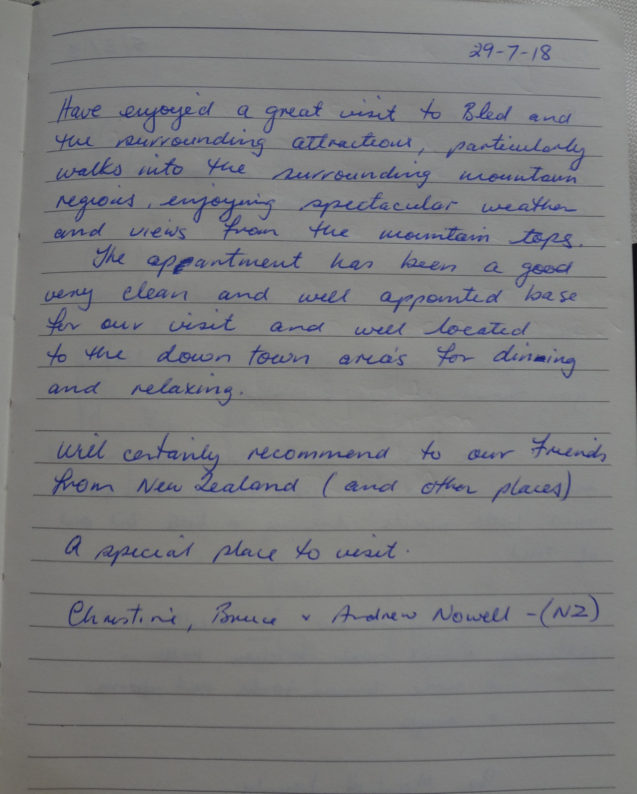 29-7-18
Have enjoyed a great visit to Bled and
the surrounding attractions, particularly
walks into the surrounding mountain
regions, enjoying spectacular weather
and views from the mountain tops.
The appartment has been a good
very clean and well appointed base
for our visit and well located
to the down town areas for dinning
and relaxing.
Will certainly recommend to our friends
from New Zealand (and other places)
A special place to visit.
Christine, Bruce & Andrew Nowell - (NZ)